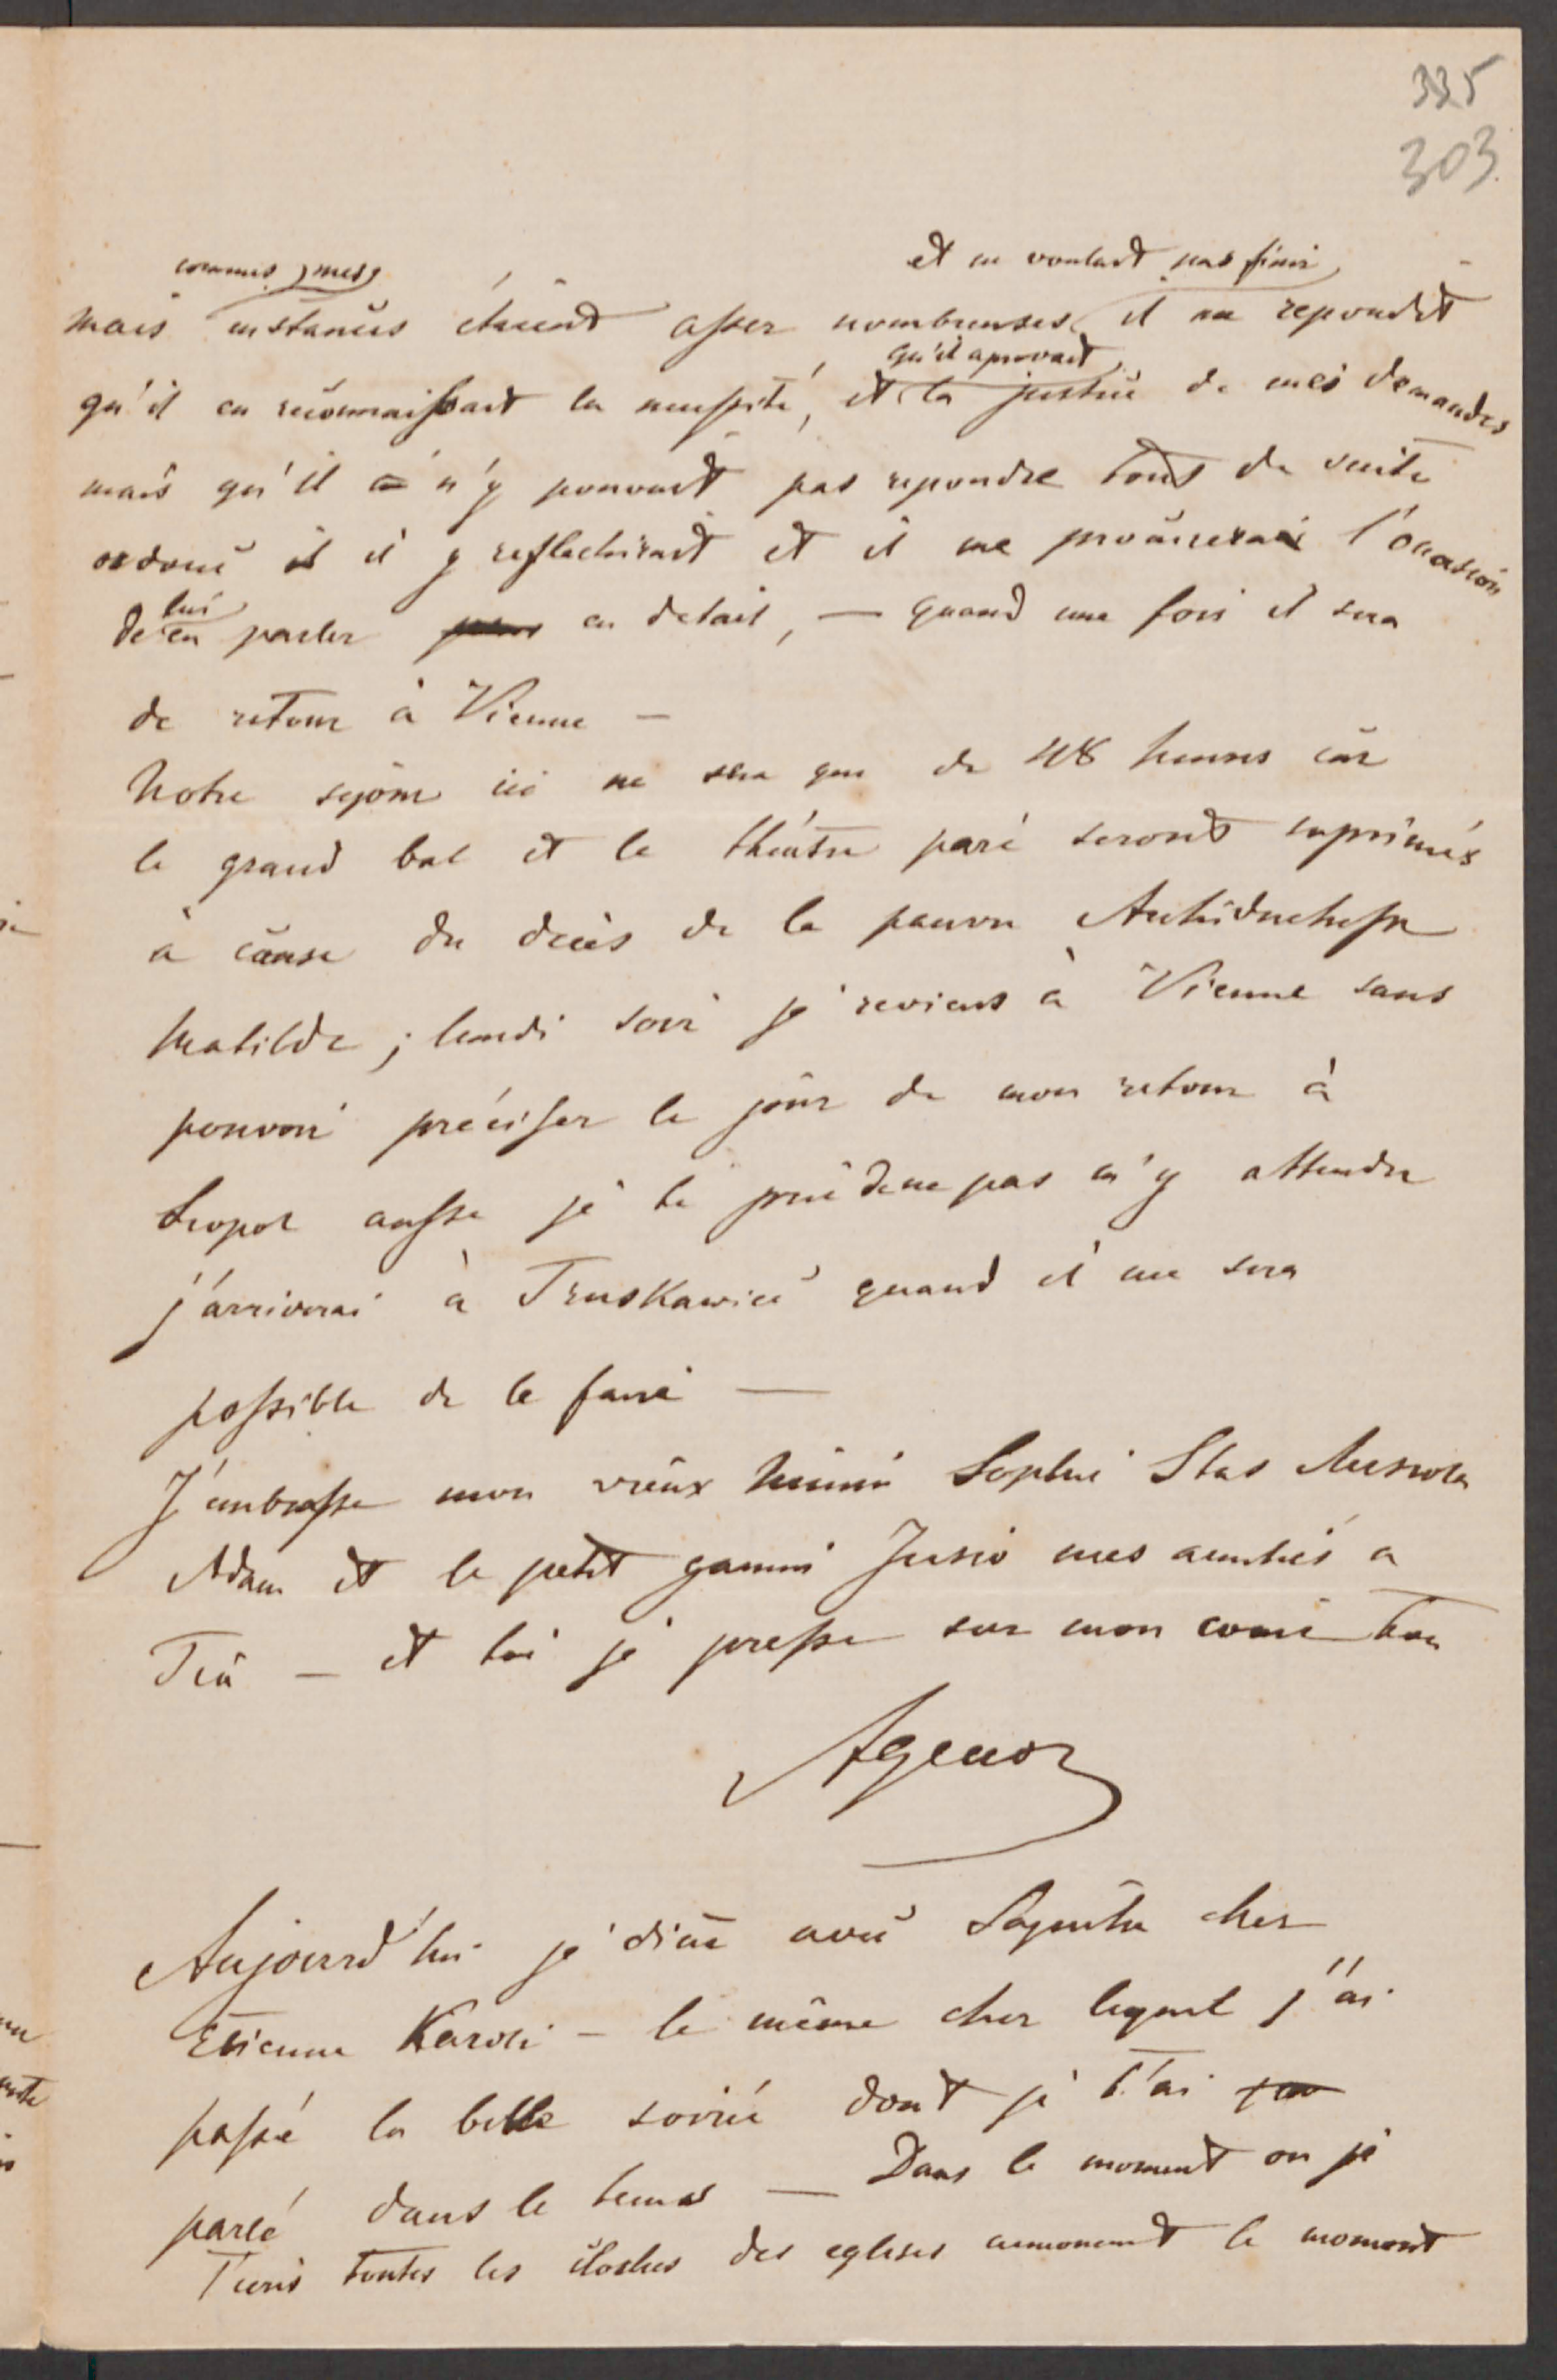 335
303.
et ne voulant pas finir
comme mes
mais instances étaient assez nombreuses il me repondit
qu'il aprovait
qu'il en reconnaissait la necessité, et la justice de mes demandes
mais qu'il n'y pouvait pas repondre tout de suite
il y reflechirait et il me procurerait l'occasion
lui
de en parler en detail, — quand une fois il sera
de retour à Vienne —
Notre sejour ici ne sera que de 48 heures car
le grand bal et le théatre paré seront suprimés
à cause du decès de la pauvre Archiduchesse
Matilde ; lundi soir je reviens à Vienne sans
pouvoir préciser le jour de mon retour à
Leopol aussi je te prie de ne pas m'y attendre
j'arriverai à Truskawice quand il me sera
possible de le faire —
J'embrasse mon vieux Mimi Sophie Stas
Adam et le petit gamin Jusio mes amitiés a
— et toi je presse sur mon coeur ton
Agenor
Aujourd'hui je dine avec chez
Etienne Karoli – le même chez lequel j'ai
passé la belle soirée dont je t'ai
parlé dans le temps — Dans le moment ou je
t'ecris toutes les cloches des eglises annoncent le moment